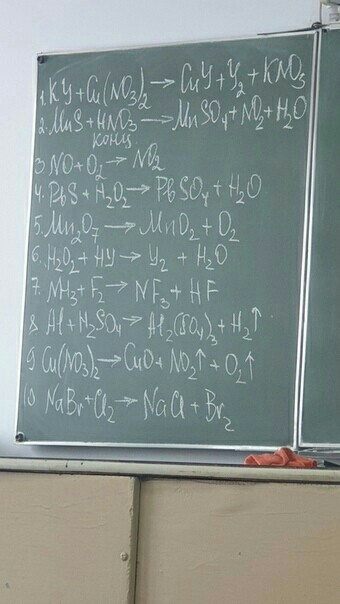 1. KY + Cu(NO3)2 → CuY + Y2 + KNO3
2. MnS + HNO3 → MnSO4 + NO2 + H2O
конц
3. NO + O2 → NO2
4. PbS + H2O2 → PbSO4 + H2O
5. Mn2O7 → MnO2 + O2
6. H2O2 + HY → Y2 + H2O
7. NH3 + F2 → NF3 + HF
8. Al + H2SO4 → Al2(SO4)3 + H2↑
9. Cu(NO3)2 → CuO + NO2↑ + O2↑
10. NaBr + Cl2 → NaCl + Br2